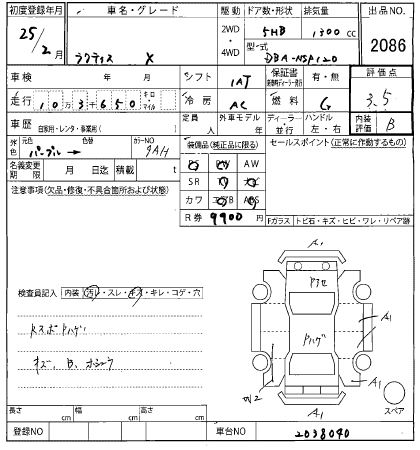 初度登録年月 車名・グレード 駆動 ドア数・形状 排気量 出品NO
25/2 月 ラクティス X 2WD・4WD 5HB 1300 cc 2086
型式 DBA-NSP120
車検 年 月 シフト IAT 保証書 有・無 評価点
走行 10万3千650 キロ マイル 冷房 AC 燃料 G 3.5
車歴 自家用・レンタ・事業用( ) 定員 人 外車モデル 年 ディーラー・並行 ハンドル 左・右 内装評価 B
外色 元色 パープル→ 色替 カラーNO 9AH
装備品(純正品に限る) セールスポイント(正常に作動するもの)
名義変更期限 月 日迄 積載 t
PS PW AW
SR TV ナビ
カワ エアB ABS
注意事項(欠品・修復・不具合箇所および状態)
R券 9900 円
Fガラス トビ石・キズ・ヒビ・ワレ・リペア跡
検査員記入 内装 汚レ・スレ・キズ・キレ・コゲ・穴
A1
ドアセ
ドハゲ
A1
A1
W2
A1
スペア
キズ、B、
長さ cm 幅 cm 高さ cm
登録NO 車台NO 2038040